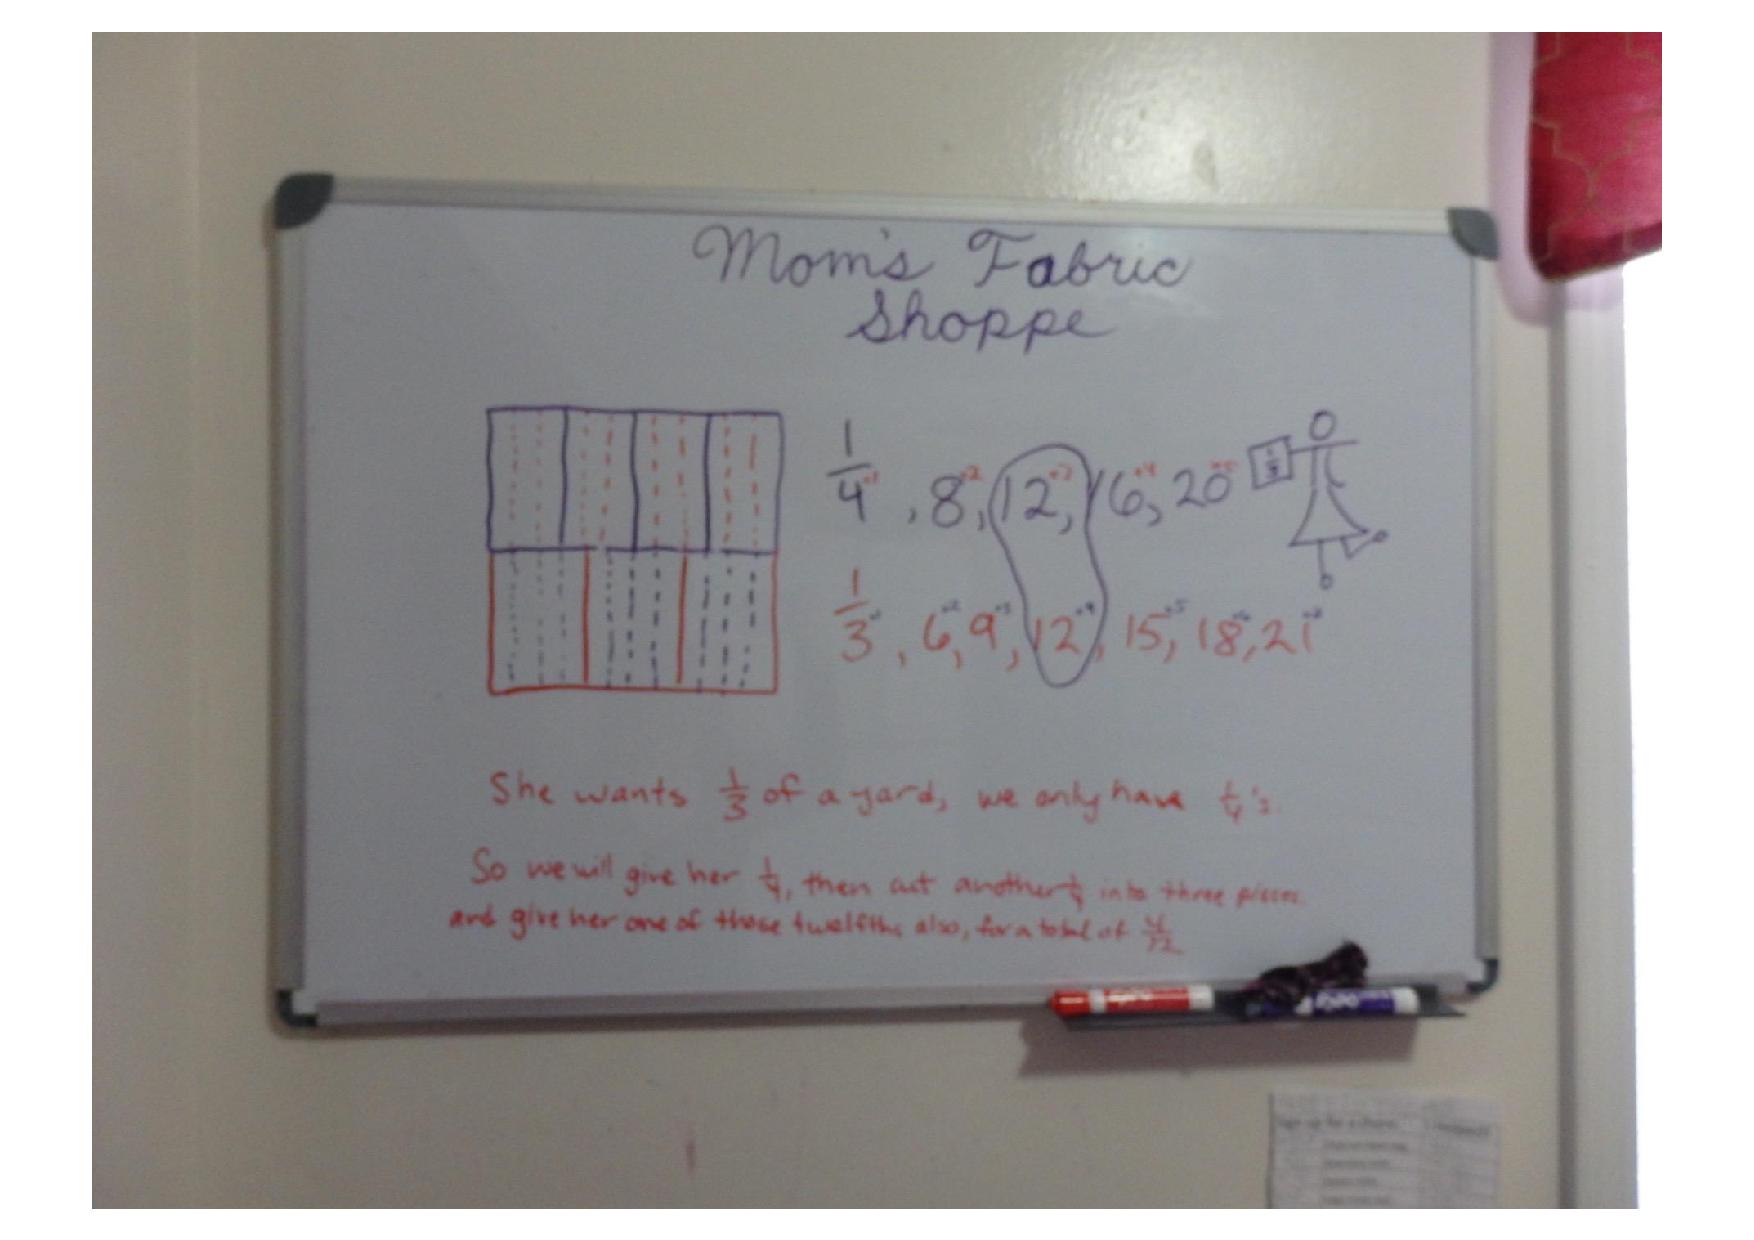 Mom's Fabric
Shoppe
1/4, 8, 12, 16, 20
1/3, 6, 9, 12, 15, 18, 21
She wants 1/3 of a yard, we only have 1/4's.
So we will give her 1/4, then cut another 1/4 into three pieces
and give her one of those twelfths also, for a total of 4/12
expo
expo